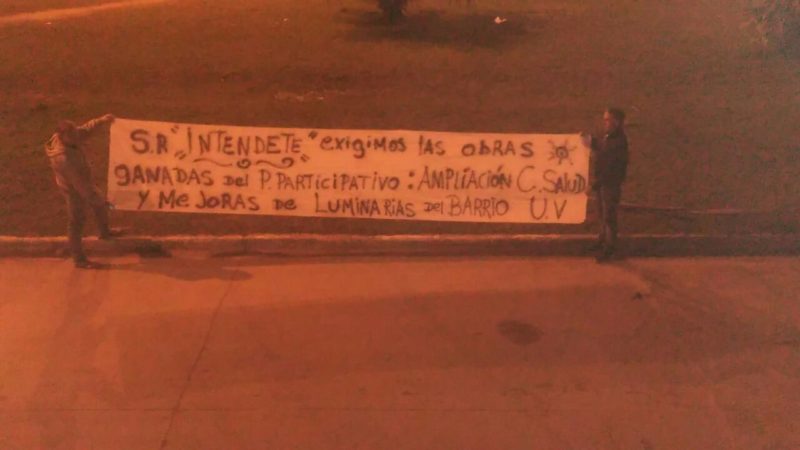 S.R "INTENDETE" exigimos las OBRAS
GANADAS del P. PARTICIPATIVO: AMPLIACIÓN C. SALUD
Y MEJORAS DE LUMINARIAS del BARRIO U.V